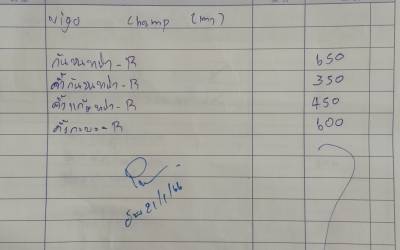 vigo champ (เทา)
กันชนหน้า - R 650
คิ้วกันชนหน้า - R 350
คิ้วแก้มหน้า - R 450
คิ้วกะบะ - R 600
21/1/66